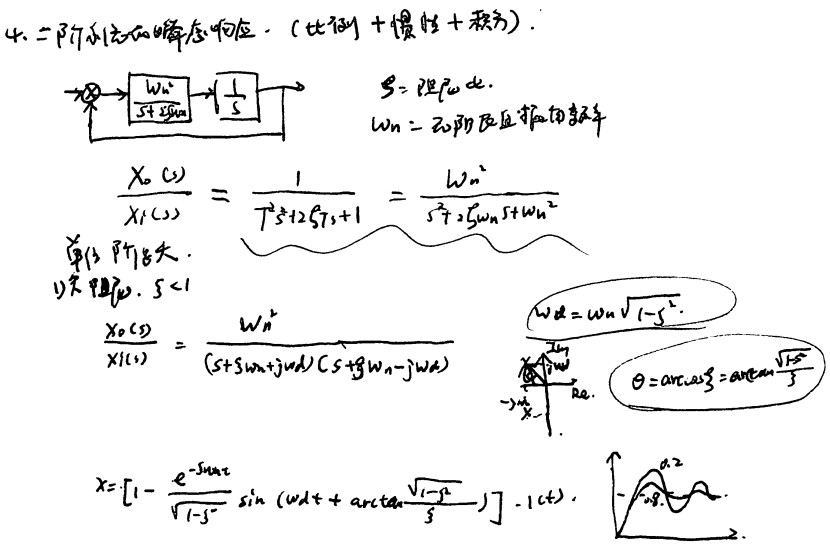 4. 二阶系统的瞬态响应. (比例 + 惯性 + 积分).
→⊗→ Wn²/(S+2ζWn) → 1/S →
ζ= 阻尼比.
Wn = 无阻尼自振角频率
Xo(s)/Xi(s) = 1/(T²s²+2ζTs+1) = Wn²/(s²+2ζWnS+Wn²)
单位阶跃.
1) 欠阻尼. ζ<1
Xo(s)/Xi(s) = Wn²/((S+ζWn+jWd)(S+ζWn-jWd))
Wd=Wn√(1-ζ²).
Im
jWd
Re.
θ=arccosζ=arctan √(1-ζ²)/ζ
X=[1- e^(-ζWnt)/√(1-ζ²) sin (Wdt + arctan √(1-ζ²)/ζ)]·1(t).
0.2
0.8